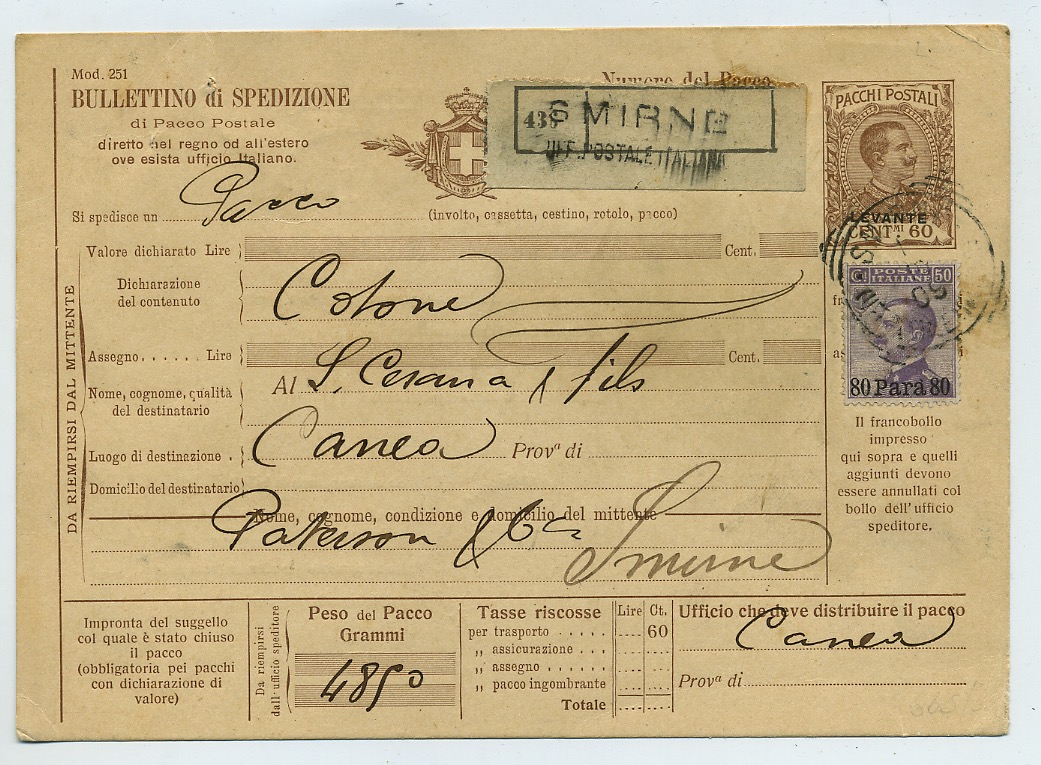 Mod. 251
BULLETTINO di SPEDIZIONE
di Pacco Postale
diretto nel regno od all'estero
ove esista ufficio Italiano.
Numero del Pacco
438
SMIRNE
UFF. POSTALE ITALIANA
PACCHI POSTALI
LEVANTE
CENT.MI 60
Si spedisce un Pacco (involto, cassetta, cestino, rotolo, pacco)
DA RIEMPIRSI DAL MITTENTE
Valore dichiarato Lire Cent.
Dichiarazione
del contenuto
Cotone
POSTE
ITALIANE
50
80 Para 80
Assegno...... Lire Cent.
Nome, cognome, qualità
del destinatario
Al S. Cesana & fils
Luogo di destinazione. Canea Provª di
Domicilio del destinatario
Nome, cognome, condizione e domicilio del mittente
Paterson & Co
Smirne
Il francobollo
impresso
qui sopra e quelli
aggiunti devono
essere annullati col
bollo dell'ufficio
speditore.
Impronta del suggello
col quale è stato chiuso
il pacco
(obbligatoria pei pacchi
con dichiarazione di
valore)
Da riempirsi
dall'ufficio speditore
Peso del Pacco
Grammi
4850
Tasse riscosse Lire Ct.
per trasporto ..... 60
„ assicurazione ...
„ assegno ......
„ pacco ingombrante
Totale
Ufficio che deve distribuire il pacco
Canea
Provª di